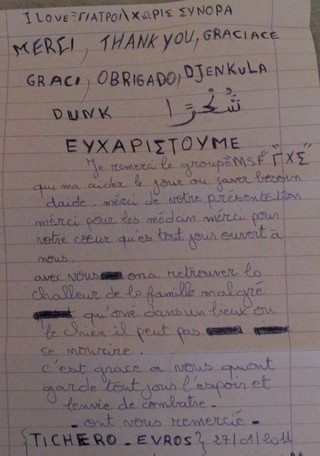 I LOVE ΓΙΑΤΡΟΙ ΧΩΡΙΣ ΣΥΝΟΡΑ
MERCI, THANK YOU, GRACIACE
GRACI, OBRIGADO, DJENKULA
DUNK شُكْرًا
ΕΥΧΑΡΙΣΤΟΥΜΕ
Je remerci le groupe MSF "ΓΧΣ"
qui ma aider le jour ou javer besoin
daide. merci de votre présentation
merci pour les médcin merci pour
votre coeur qu'es tout jous ouvert à
nous.
avec vous ona retrouver la
challeur de la famille malgré
qu'one dans un lieux ou
le chien il peut pas
se nourire.
c'est grace a vous quont
garde tout jous l'espoir et
l'envie de combatre.
- ont vous remercie -
{TICHERO-EVROS} 27/01/2011